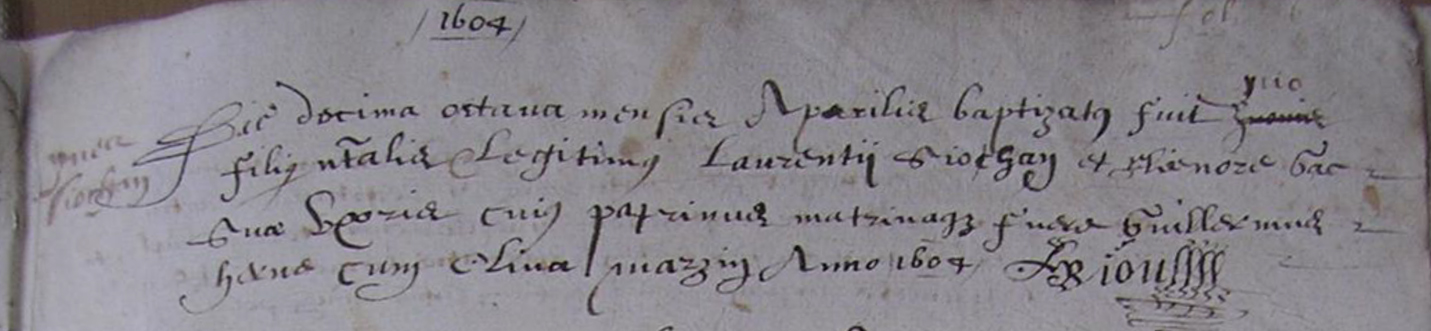 1604
fol
yuo
Die decima octava mensis Aparilis baptizatus fuit
filius ntalis Legitimus Laurentij Siochan et Elienore Gac
Suæ Uxoris cuius patrinus matrinaq; fuere Guillermus
cum Oliva Anno 1604